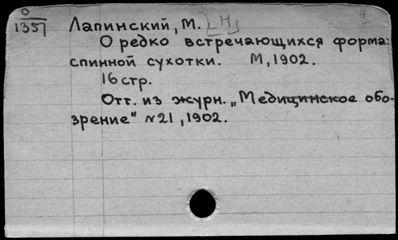 О
1357 Лапинский, М. [Н]
О редко встречающихся формах
спинной сухотки. М, 1902.
16 стр.
Отт. из журн. „Медицинское обо-
зрение" №21, 1902.